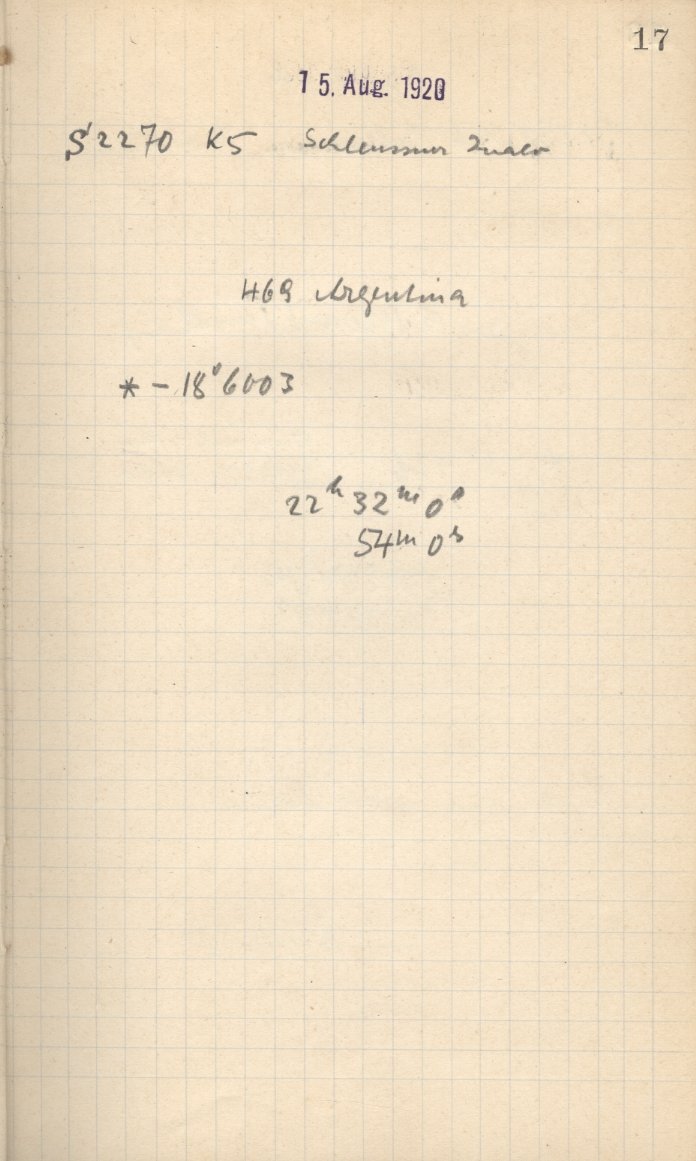 17
15. Aug. 1920
S 2270 K5 Schleussner
469 Argentina
* - 18° 6003
22h 32m 0s
54m 0s